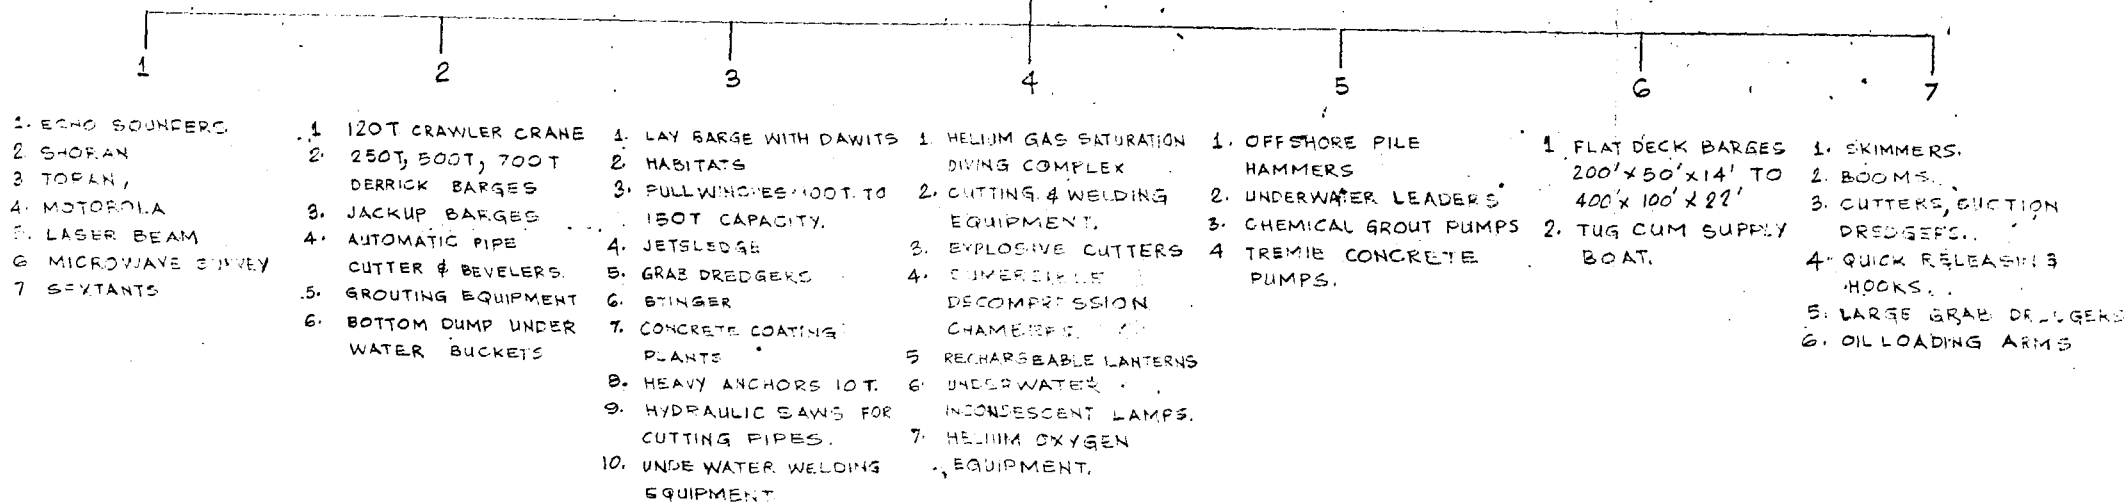 1
1. ECHO SOUNDERS
2 SHORAN
3 TORAN,
4. MOTOROLA
5. LASER BEAM
6 MICROWAVE SURVEY
7 SEXTANTS
2
1 120T CRAWLER CRANE
2. 250T, 500T, 700T
DERRICK BARGES
3. JACKUP BARGES
4. AUTOMATIC PIPE
CUTTER & BEVELERS.
5. GROUTING EQUIPMENT
6. BOTTOM DUMP UNDER
WATER BUCKETS
3
1. LAY BARGE WITH DAWITS
2 HABITATS
3. PULL WINCHES 100T. TO
150T CAPACITY.
4. JETSLEDGE
5. GRAB DREDGERS
6. STINGER
7. CONCRETE COATING
PLANTS
8. HEAVY ANCHORS 10T.
9. HYDRAULIC SAWS FOR
CUTTING PIPES.
10. UNDE WATER WELDING
EQUIPMENT
4
1. HELIUM GAS SATURATION
DIVING COMPLEX
2. CUTTING & WELDING
EQUIPMENT.
3. EXPLOSIVE CUTTERS
4. SUMERSIBLE
DECOMPRESSION
CHAMBERS.
5 RECHARGEABLE LANTERNS
6. UNDERWATER
INCONDESCENT LAMPS.
7. HELIUM OXYGEN
EQUIPMENT.
5
1. OFFSHORE PILE
HAMMERS
2. UNDERWATER LEADERS
3. CHEMICAL GROUT PUMPS
4 TREMIE CONCRETE
PUMPS.
6
1 FLAT DECK BARGES
200' X 50' X 14' TO
400' X 100' X 22'
2. TUG CUM SUPPLY
BOAT.
7
1. SKIMMERS.
2. BOOMS.
3. CUTTERS, SUCTION
DREDGERS..
4. QUICK RELEASING
HOOKS..
5. LARGE GRAB DREDGERS
6. OIL LOADING ARMS